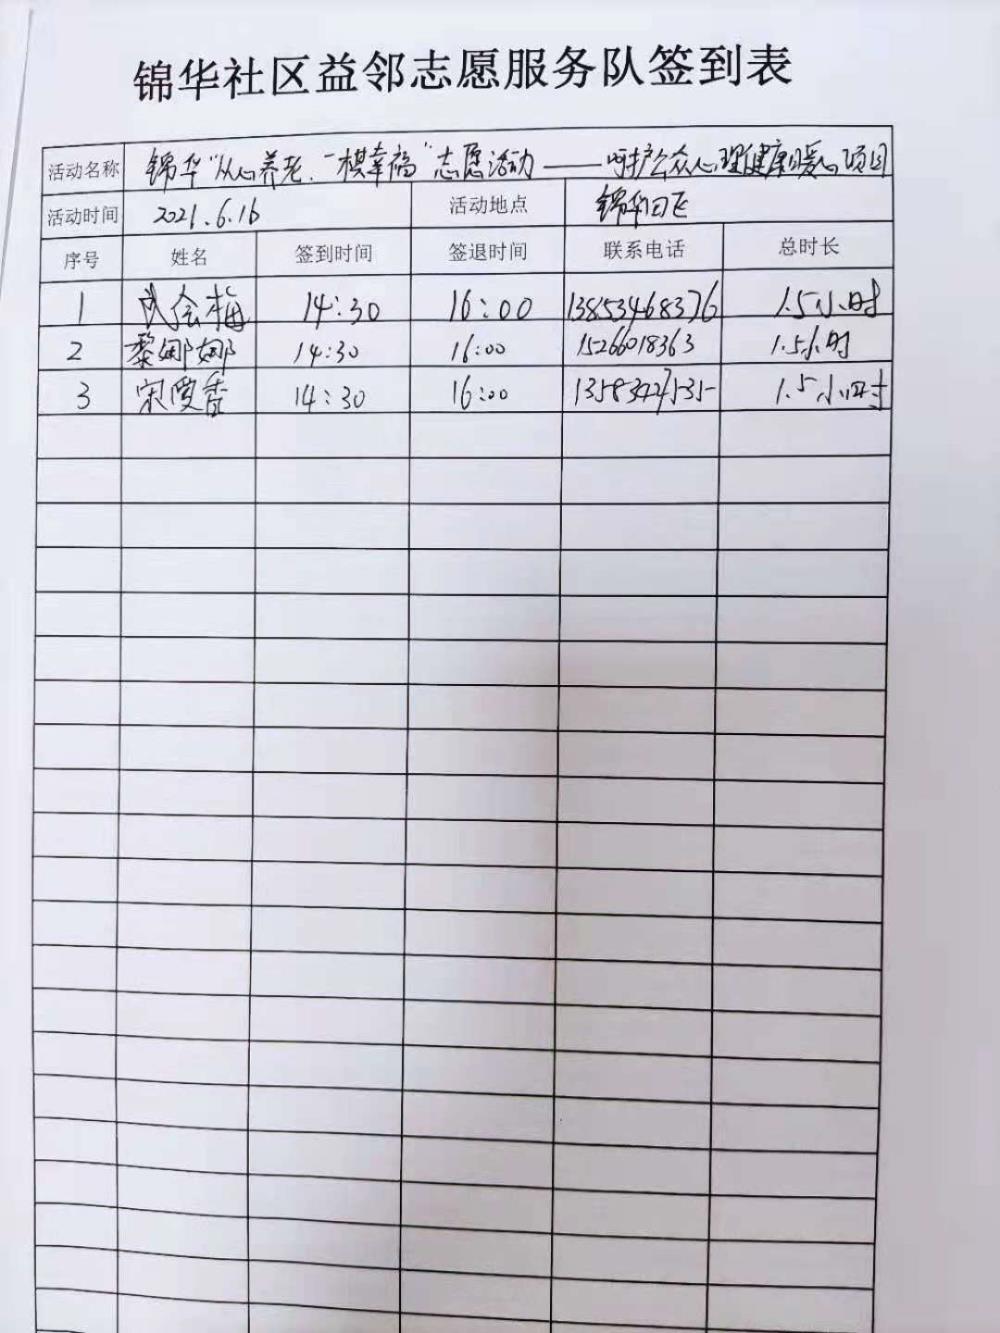 锦华社区益邻志愿服务队签到表
活动名称 锦华“从心养老、一棋幸福”志愿活动——呵护公众心理健康暖心项目
活动时间 2021.6.16 活动地点 锦华社区
序号 姓名 签到时间 签退时间 联系电话 总时长
1 武会梅 14:30 16:00 13853468376 1.5小时
2 黎娜娜 14:30 16:00 15266018363 1.5小时
3 宋爱香 14:30 16:00 1.5小时